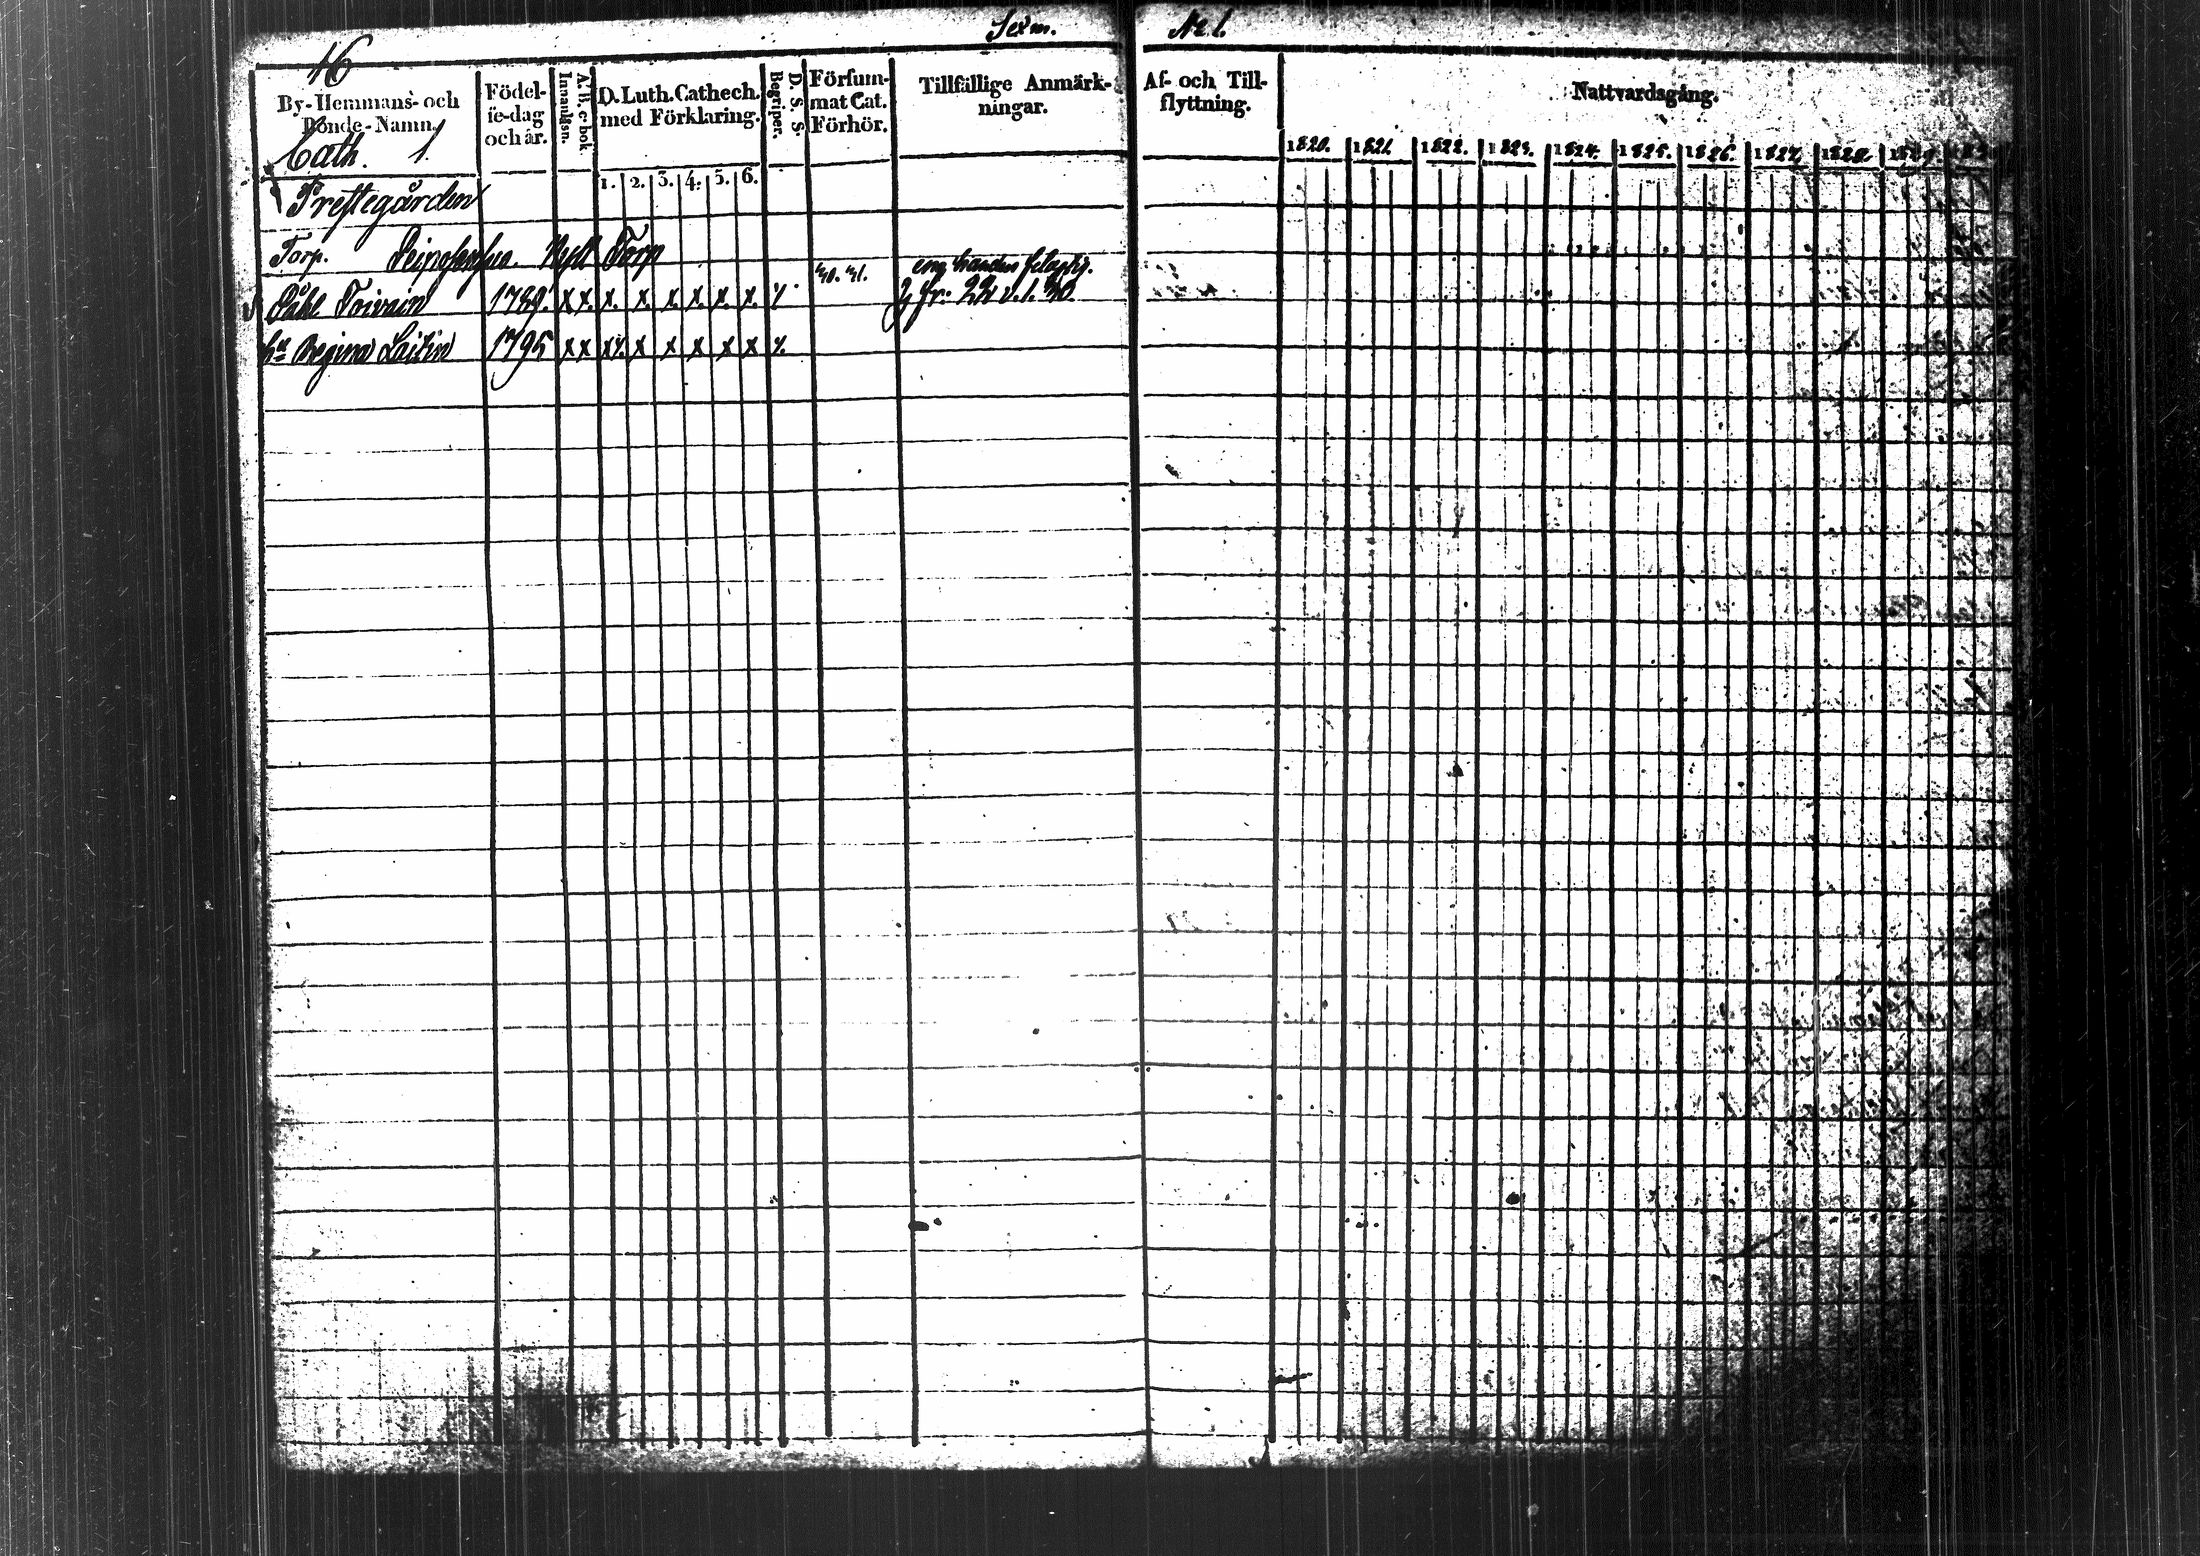 16
Sexm. No 1.
By- Hemmans- och Bonde-Namn.
Födelse-dag och år.
Innanläsn.
A. B. c-bok.
D. Luth. Cathech. med Förklaring.
Begriper.
D. S. S.
Försummat Cat. Förhör.
Tillfällige Anmärkningar.
Af- och Tillflyttning.
Nattvardsgång.
Cath. 1.
1. 2. 3. 4. 5. 6.
1820. 1821. 1822. 1823. 1824. 1825. 1826. 1827. 1828. 1829.
Prestegården
Torp. Nytt Torp
Påhl Toivain 1789. x x. x. x. x. x. x. x.
hu Regina Laitin 1795 x x x x x x x x